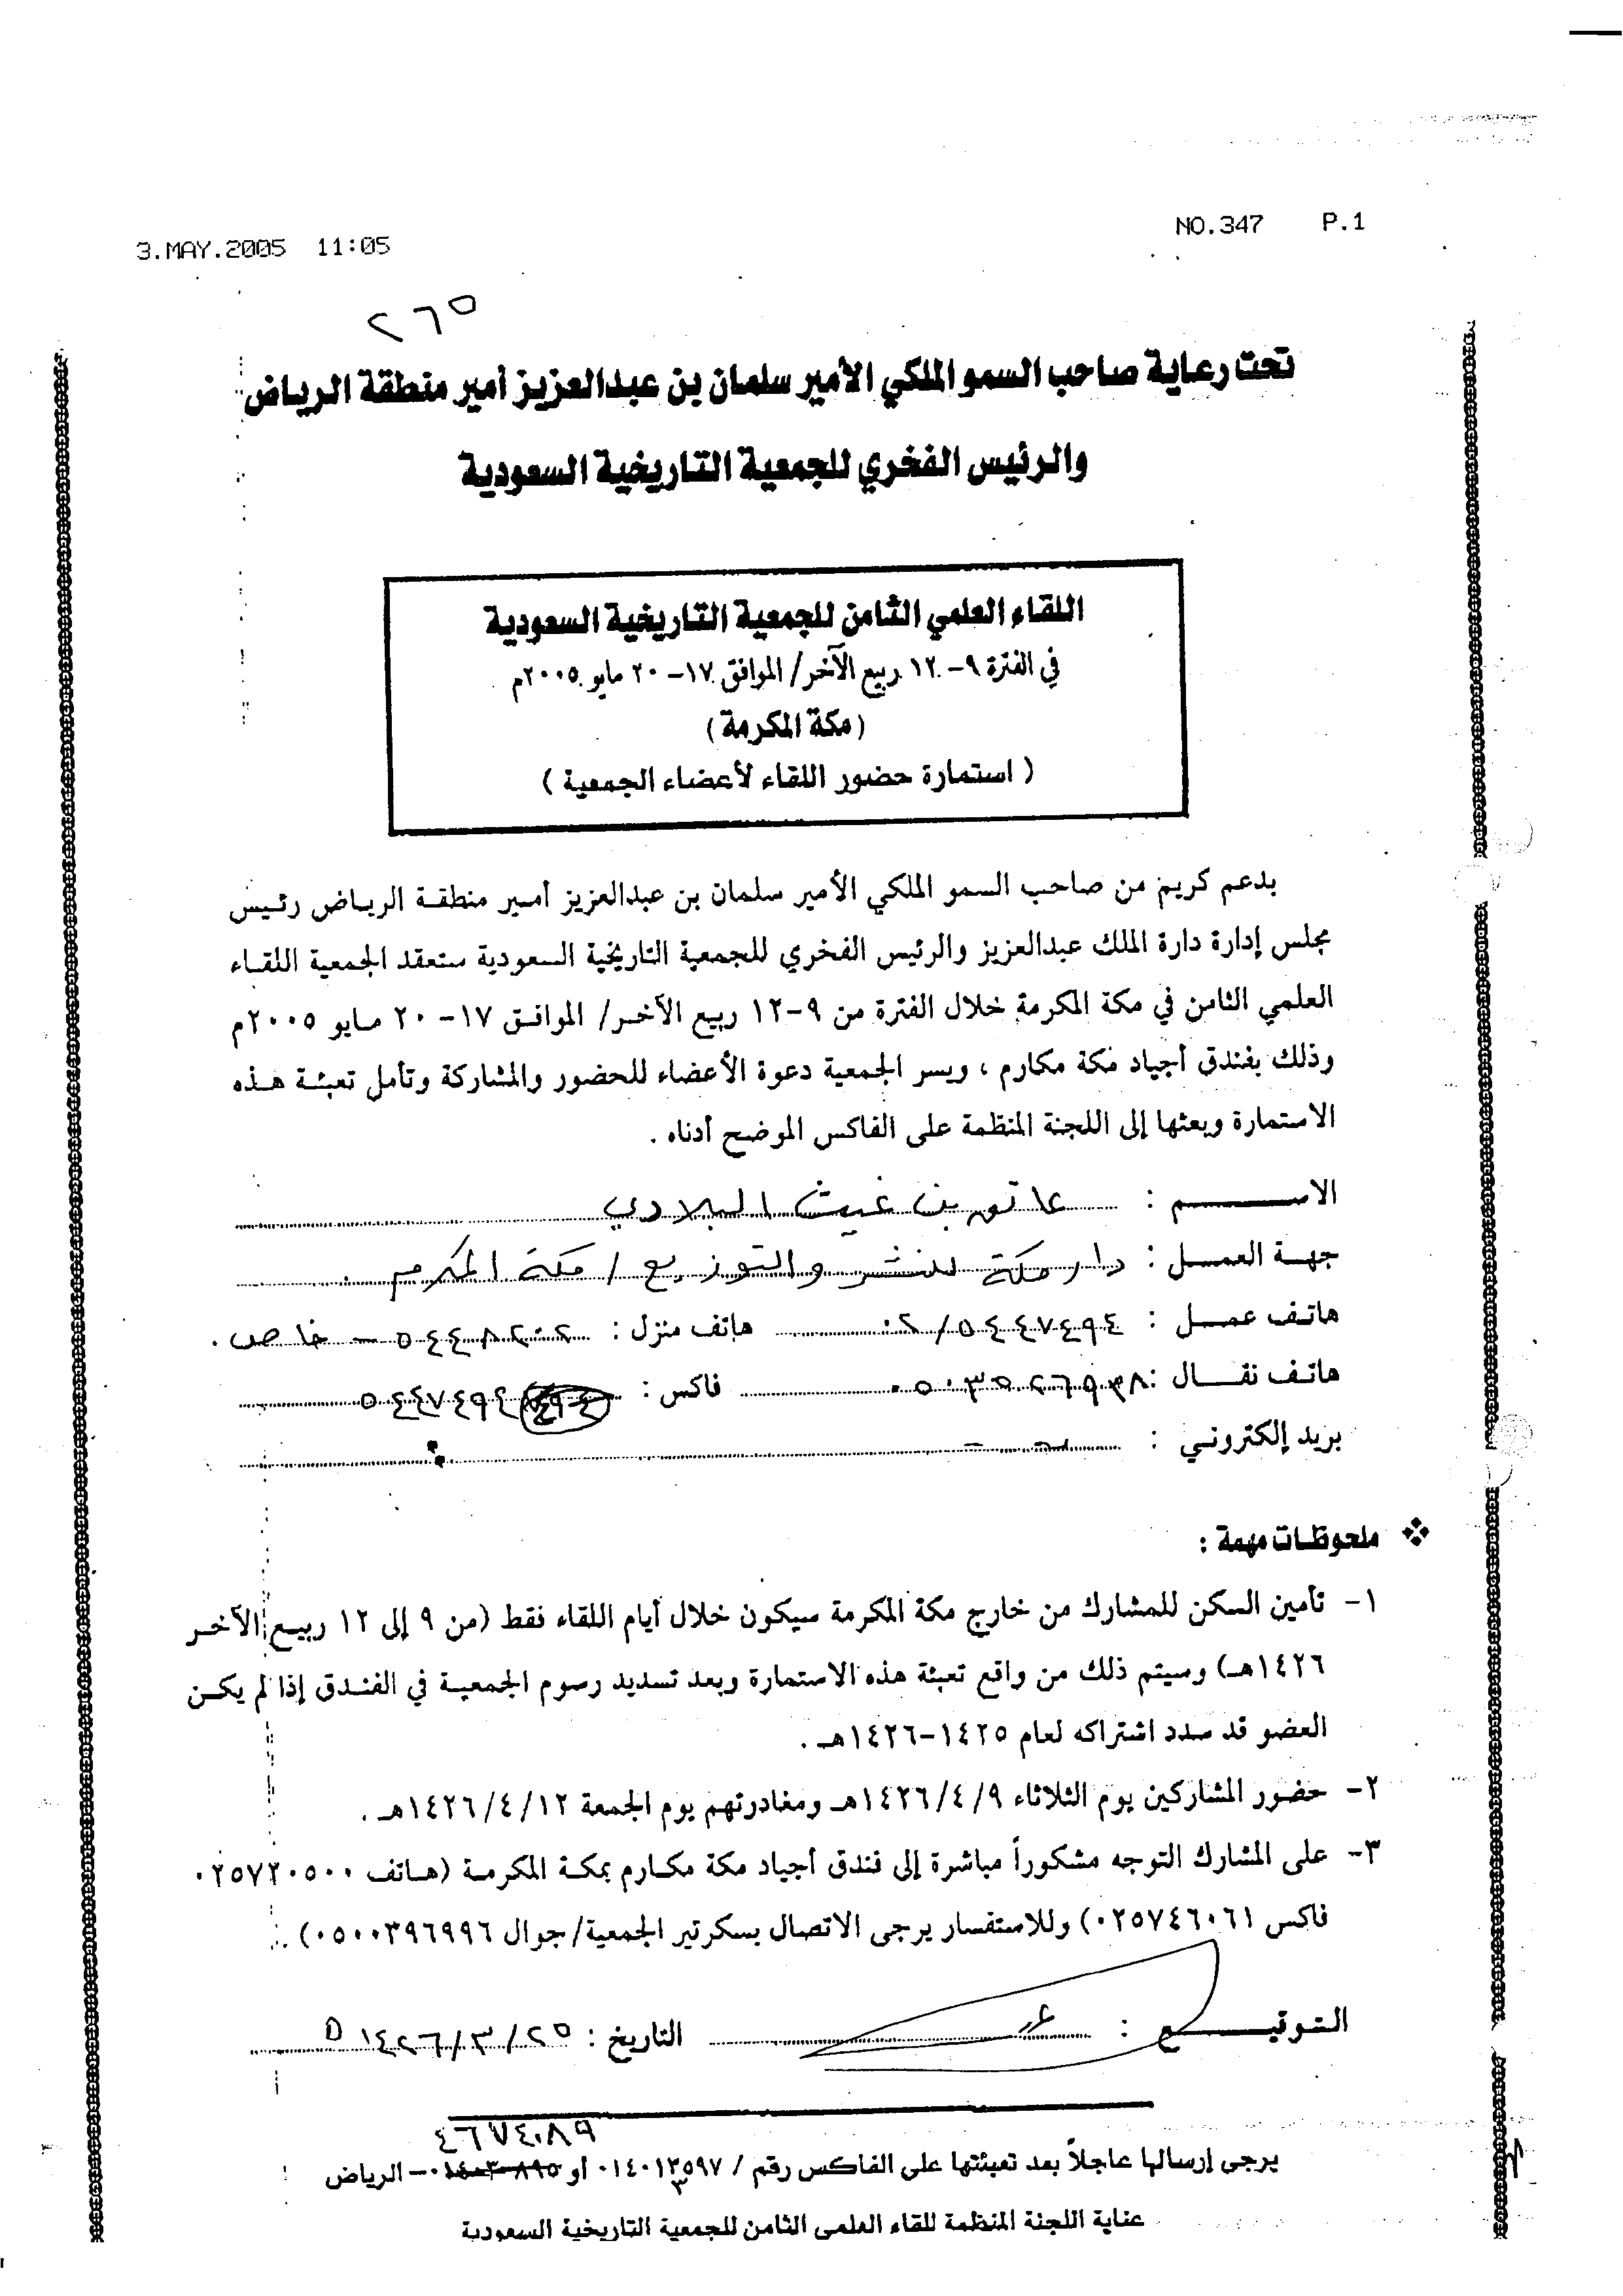 NO.347 P.1
3.MAY.2005 11:05
٢٦٥
تحت رعاية صاحب السمو الملكي الأمير سلمان بن عبدالعزيز أمير منطقة الرياض
والرئيس الفخري للجمعية التاريخية السعودية
اللقاء العلمي الثامن للجمعية التاريخية السعودية
في الفترة ٩-١٢ ربيع الآخر/ الموافق ١٧-٢٠ مايو ٢٠٠٥م
(مكة المكرمة)
( استمارة حضور اللقاء لأعضاء الجمعية )
بدعم كريم من صاحب السمو الملكي الأمير سلمان بن عبدالعزيز أمير منطقة الرياض رئيس
مجلس إدارة دارة الملك عبدالعزيز والرئيس الفخري للجمعية التاريخية السعودية ستعقد الجمعية اللقاء
العلمي الثامن في مكة المكرمة خلال الفترة من ٩-١٢ ربيع الآخر/ الموافق ١٧-٢٠ مايو ٢٠٠٥م
وذلك بفندق أجياد مكة مكارم ، ويسر الجمعية دعوة الأعضاء للحضور والمشاركة وتأمل تعبئة هذه
الاستمارة وبعثها إلى اللجنة المنظمة على الفاكس الموضح أدناه .
الاسم : عاتق بن غيث البلادي
جهة العمل : دار مكة للنشر والتوزيع / مكة المكرمة
هاتف عمل : ٠٢/٥٤٤٧٤٩٤ هاتف منزل : ٥٤٤٨٢٠٢ - خاص .
هاتف نقال : ٠٥٠٣٥٢٦٩٣٨ فاكس : ٥٤٤٧٤٩٤
بريد إلكتروني :
❖ ملحوظات مهمة :
١- تأمين السكن للمشارك من خارج مكة المكرمة سيكون خلال أيام اللقاء فقط (من ٩ إلى ١٢ ربيع الآخر
١٤٢٦هـ) وسيتم ذلك من واقع تعبئة هذه الاستمارة وبعد تسديد رسوم الجمعية في الفندق إذا لم يكن
العضو قد سدد اشتراكه لعام ١٤٢٥-١٤٢٦هـ .
٢- حضور المشاركين يوم الثلاثاء ١٤٢٦/٤/٩هـ ومغادرتهم يوم الجمعة ١٤٢٦/٤/١٢هـ .
٣- على المشارك التوجه مشكوراً مباشرة إلى فندق أجياد مكة مكارم بمكة المكرمة (هاتف ٠٢٥٧٢٠٥٠٠
فاكس ٠٢٥٧٤٦٠٦١) وللاستفسار يرجى الاتصال بسكرتير الجمعية/ جوال ٠٥٠٠٣٩٦٩٩٦) .
التوقيع : التاريخ : ٢٥/٣/١٤٢٦ هـ
٤٦٧٤٠٨٩
يرجى إرسالها عاجلاً بعد تعبئتها على الفاكس رقم / ٠١٤٠١٣٥٩٧ أو ٠١٤٠٣٠٨٩٥ - الرياض
٣
عناية اللجنة المنظمة للقاء العلمي الثامن للجمعية التاريخية السعودية